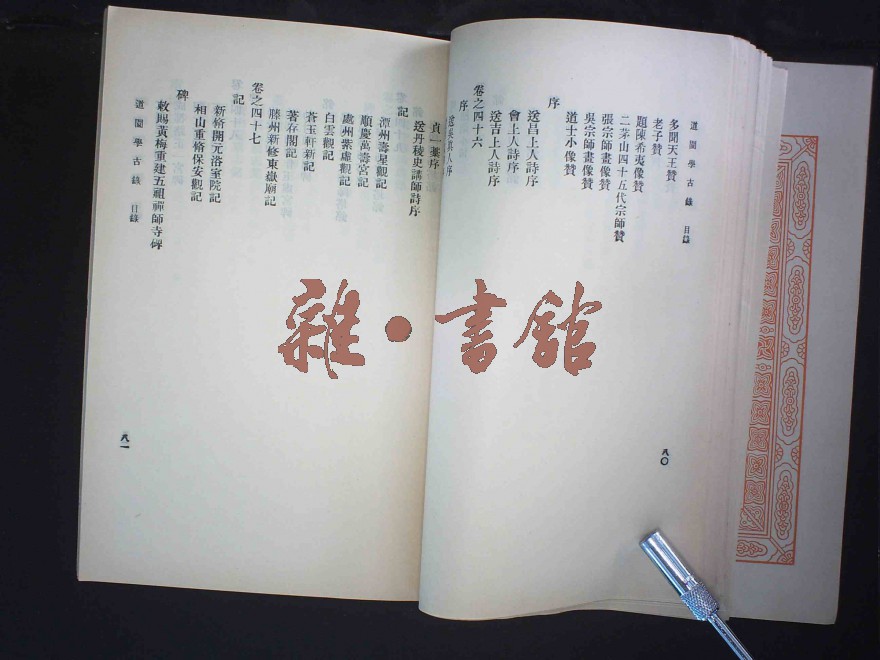 道園學古錄 目錄
多聞天王贊
老子贊
題陳希夷像贊
二茅山四十五代宗師贊
張宗師畫像贊
吳宗師畫像贊
道士小像贊
序
送昌上人詩序
會上人詩序
送吉上人詩序
卷之四十六
序
送吳真人序
八〇
貞一藁序
送丹稜史講師詩序
記
潭州壽星觀記
順慶萬壽宮記
處州紫虛觀記
白雲觀記
蒼玉軒新記
著存閣記
滕州新修東嶽廟記
卷之四十七
記
新脩開元浴室院記
相山重脩保安觀記
碑
敕賜黃梅重建五祖禪師寺碑
道園學古錄 目錄
八一
雜·書館